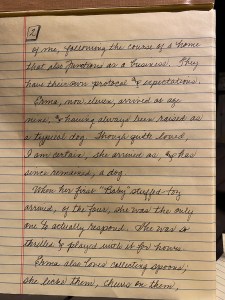 2
of me, following the course of a home
that also functions as a business. They
have their own protocol & expectations.
Emma, now eleven, arrived at age
nine, & having always been raised as
a typical dog. Though quite loved,
I am certain, she arrived as, & has
since remained, a dog.
When her first "Baby" stuffed toy
arrived, of the four, she was the only
one to actually respond. She was so
thrilled & played with it for hours.
Emma also loves collecting spoons;
she licks them, chews on them,